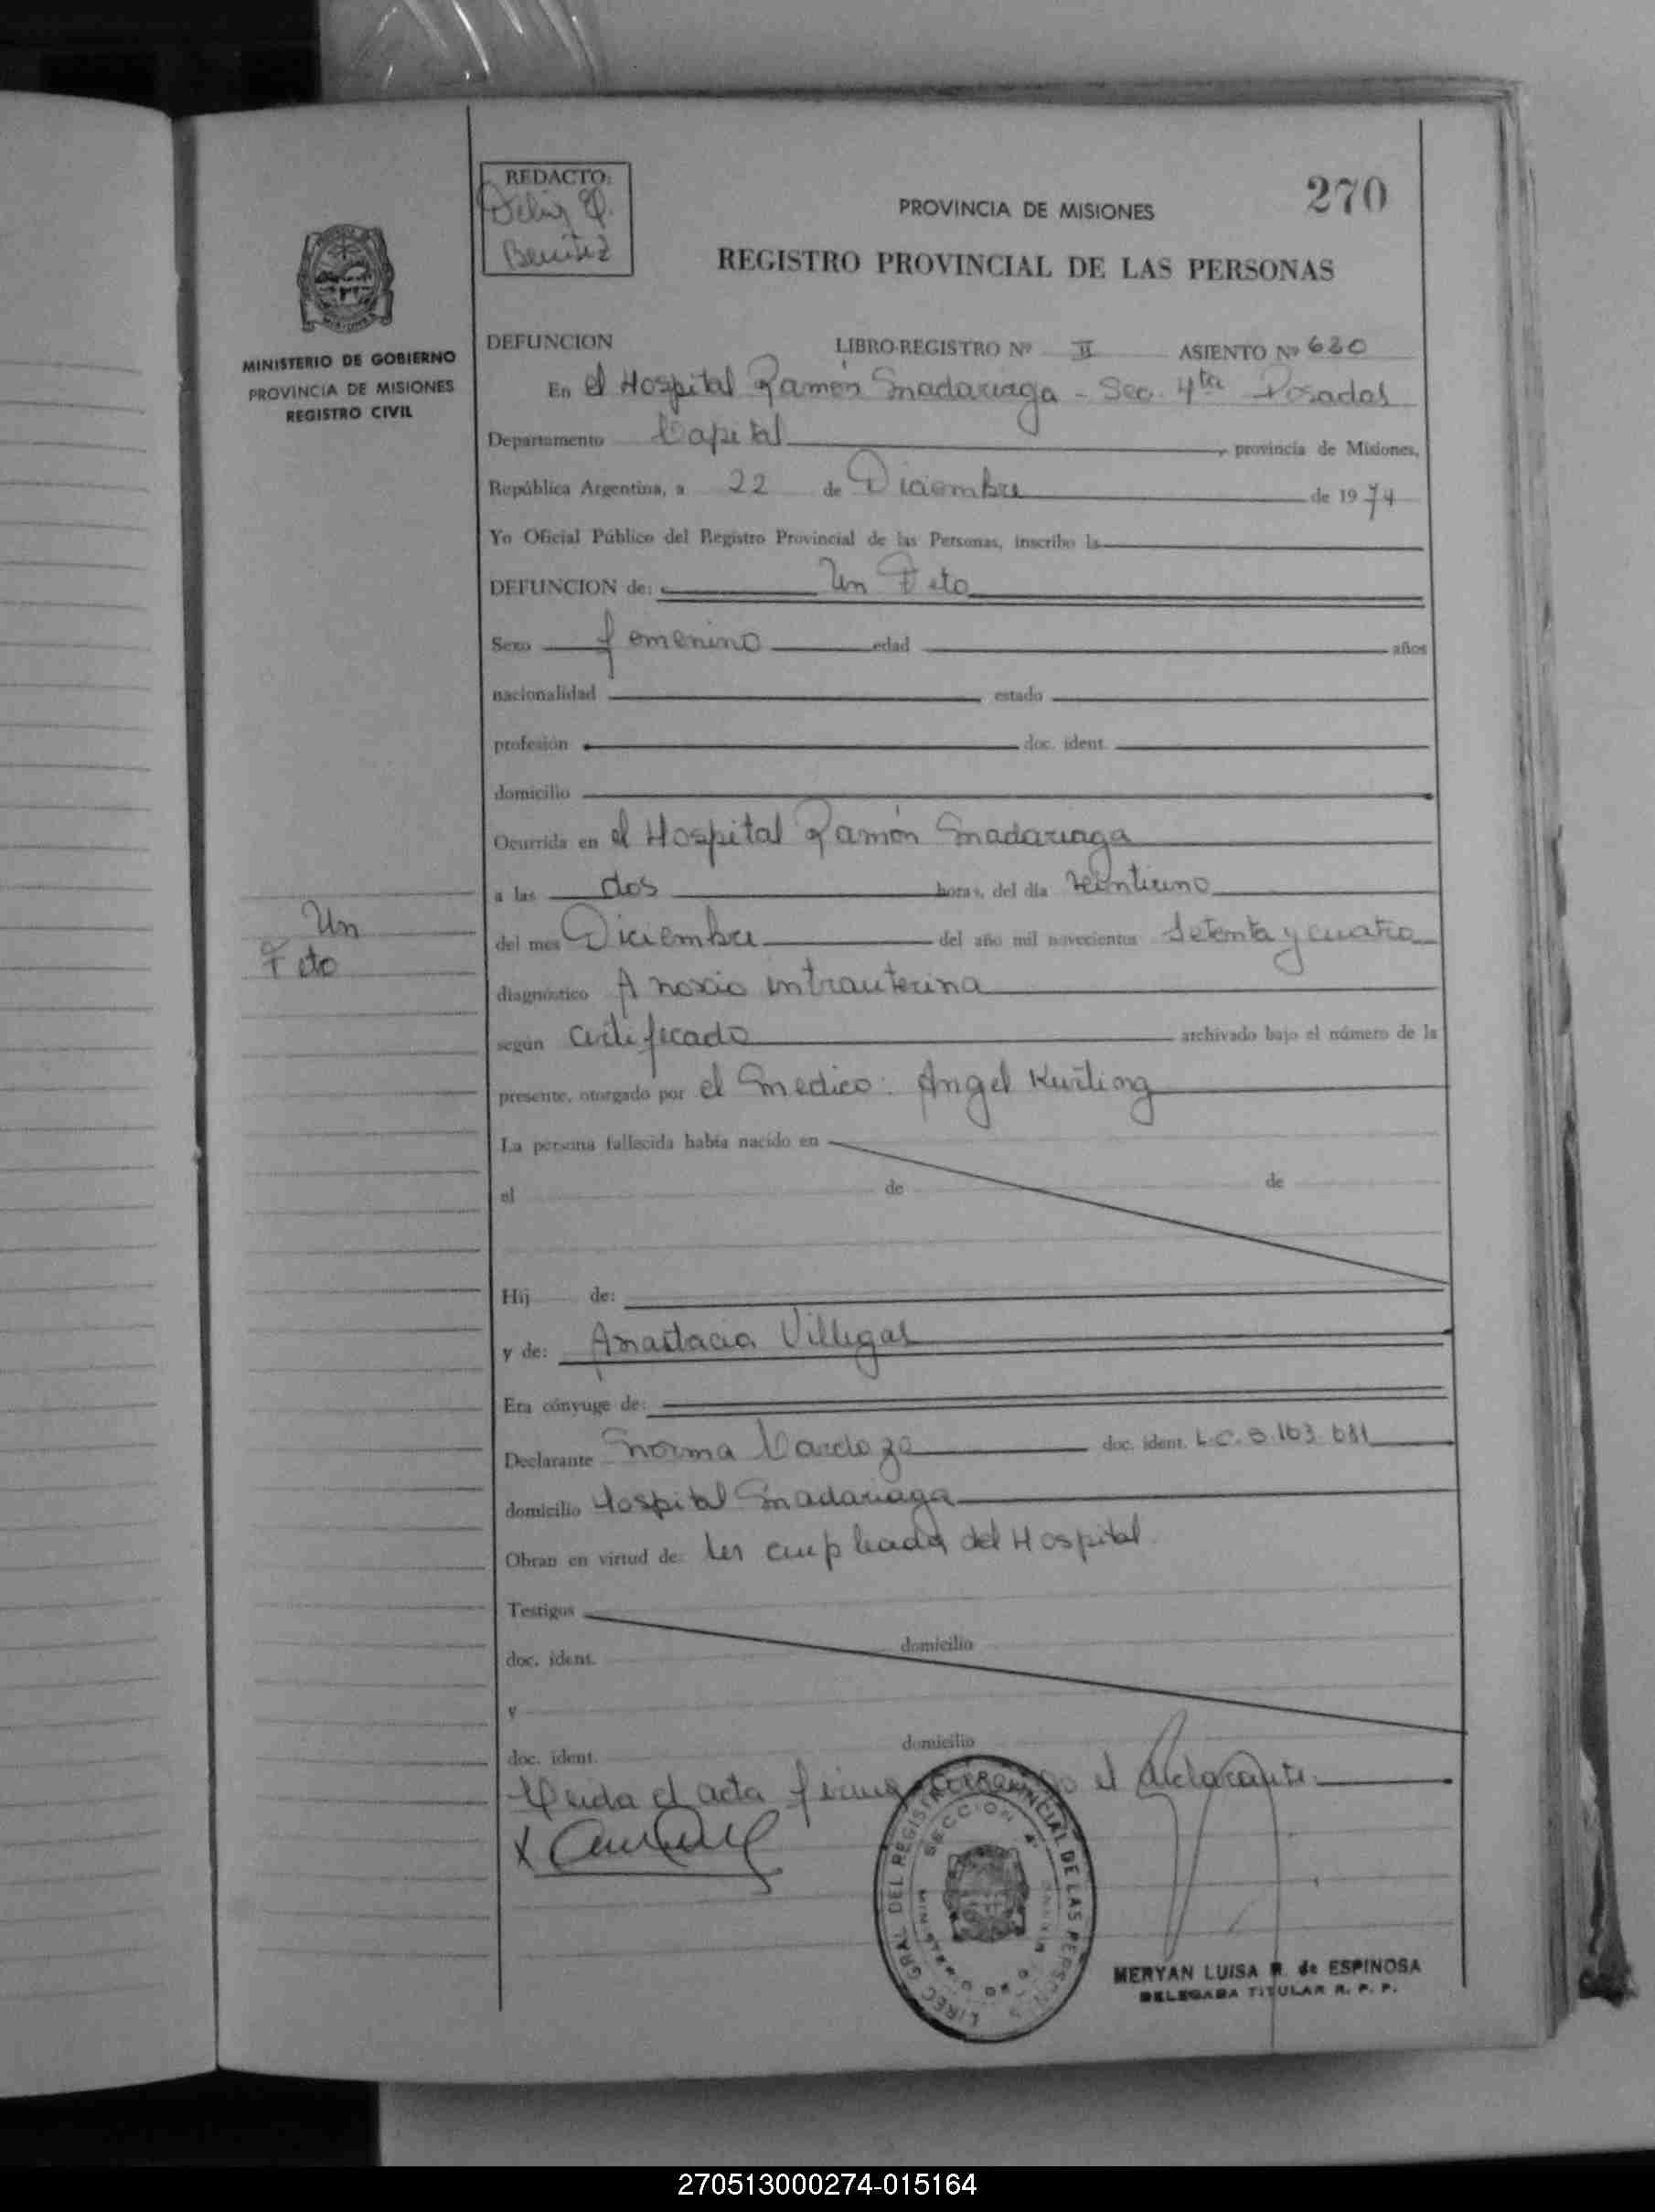 REDACTO:
Benitez
270
PROVINCIA DE MISIONES
REGISTRO PROVINCIAL DE LAS PERSONAS
MINISTERIO DE GOBIERNO
PROVINCIA DE MISIONES
REGISTRO CIVIL
DEFUNCION LIBRO-REGISTRO Nº II ASIENTO Nº 680
En el Hospital Ramón Madariaga - Sec. 4ta Posadas
Departamento Capital, provincia de Misiones,
República Argentina, a 22 de Diciembre de 1974
Yo Oficial Público del Registro Provincial de las Personas, inscribo la
DEFUNCION de: Un Feto
Sexo femenino edad años
nacionalidad estado
profesión doc. ident.
domicilio
Ocurrida en el Hospital Ramón Madariaga
a las dos horas, del día veintiuno
Un
Feto
del mes Diciembre del año mil novecientos setenta y cuatro
diagnóstico Anoxia intrauterina
según certificado archivado bajo el número de la
presente, otorgado por el medico: Angel Kurling
La persona fallecida había nacido en
el de de
Hij de:
y de: Anastacia Villegas
Era cónyuge de:
Declarante Norma Cardozo doc. ident. L.C. 5.163.681
domicilio Hospital Madariaga
Obran en virtud de: ser empleada del Hospital
Testigos
doc. ident. domicilio
y
doc. ident. domicilio
Leida el acta firma el declarante
DIREC. GRAL. DEL REGISTRO PROVINCIAL DE LAS PERSONAS
SECCION 4ª
MINISTERIO DE
MERYAN LUISA R. de ESPINOSA
DELEGADA TITULAR R. P. P.
270513000274-015164